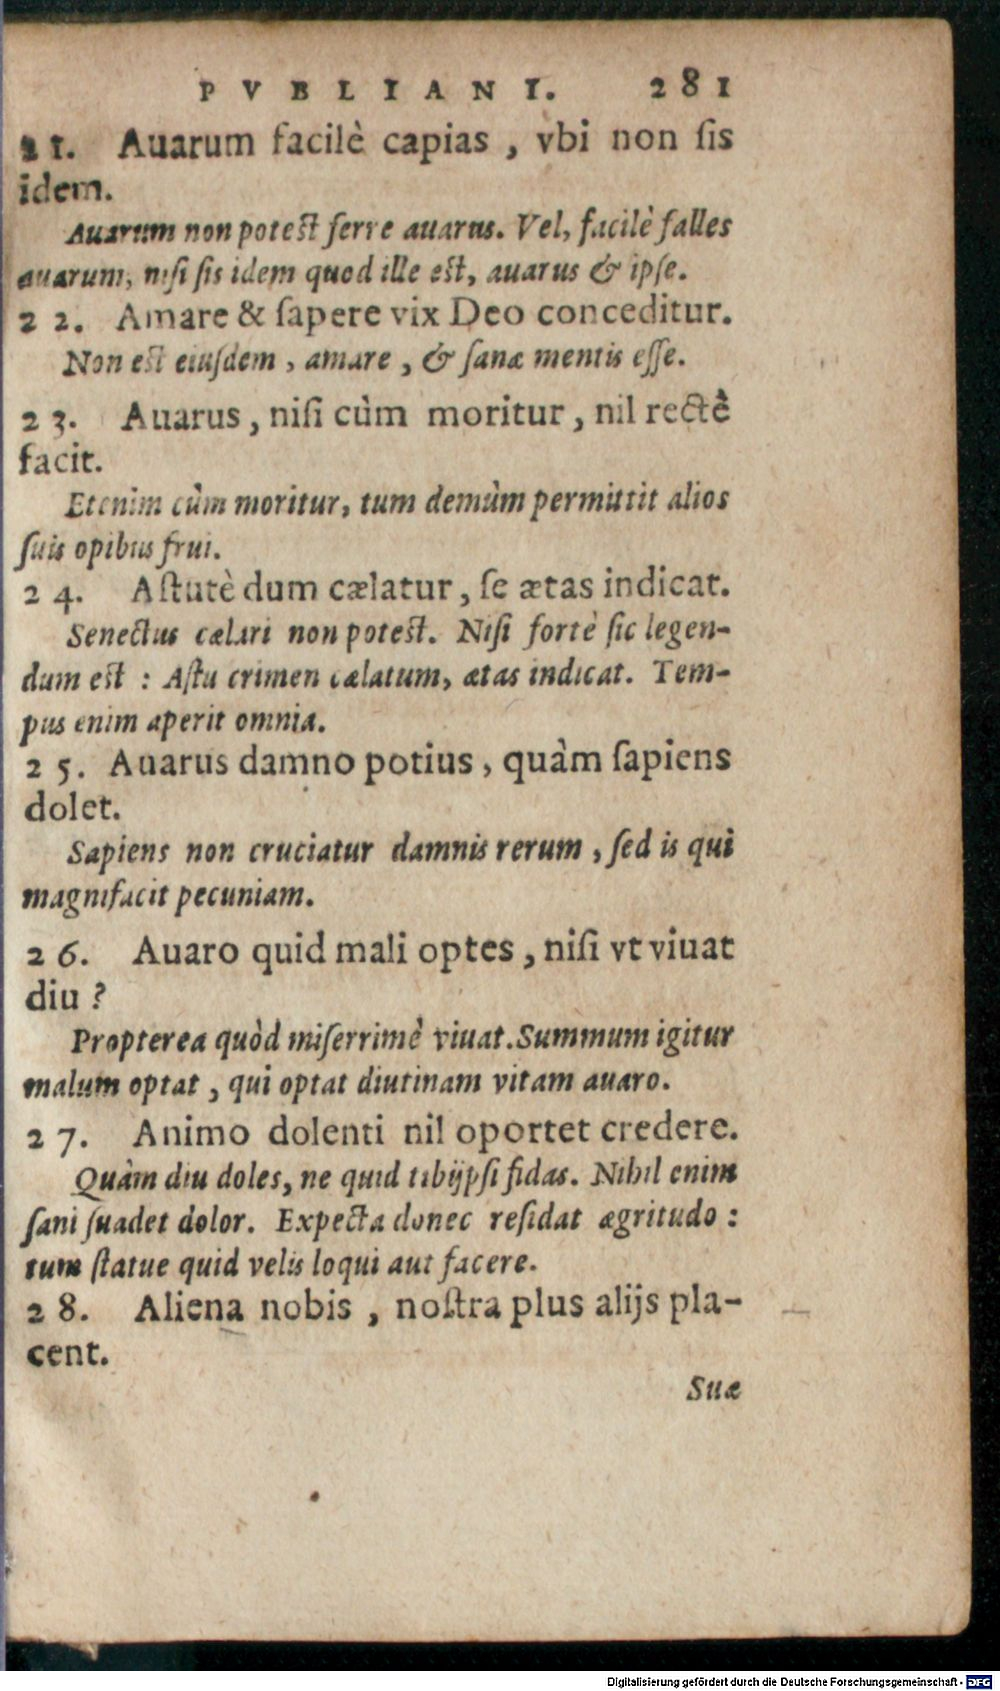 PVBLIANI. 281
21. Auarum facilè capias, vbi non ſis
idem.
Auarum non poteſt ferre auarus. Vel, facilè falles
auarum, niſi ſis idem quod ille eſt, auarus & ipſe.
22. Amare & ſapere vix Deo conceditur.
Non eſt eiuſdem, amare, & ſanæ mentis eſſe.
23. Auarus, niſi cùm moritur, nil rectè
facit.
Etenim cùm moritur, tum demùm permittit alios
ſuis opibus frui.
24. Aſtutè dum cælatur, ſe ætas indicat.
Senectus cælari non poteſt. Niſi fortè ſic legen-
dum eſt : Aſtu crimen cælatum, ætas indicat. Tem-
pus enim aperit omnia.
25. Auarus damno potius, quàm ſapiens
dolet.
Sapiens non cruciatur damnis rerum, ſed is qui
magnifacit pecuniam.
26. Auaro quid mali optes, niſi vt viuat
diu ?
Propterea quòd miſerrimè viuat. Summum igitur
malum optat, qui optat diutinam vitam auaro.
27. Animo dolenti nil oportet credere.
Quàm diu doles, ne quid tibijpſi fidas. Nihil enim
ſani ſuadet dolor. Expecta donec reſidat ægritudo :
tum ſtatue quid velis loqui aut facere.
28. Aliena nobis, noſtra plus alijs pla-
cent.
Suæ
Digitalisierung gefördert durch die Deutsche Forschungsgemeinschaft - DFG